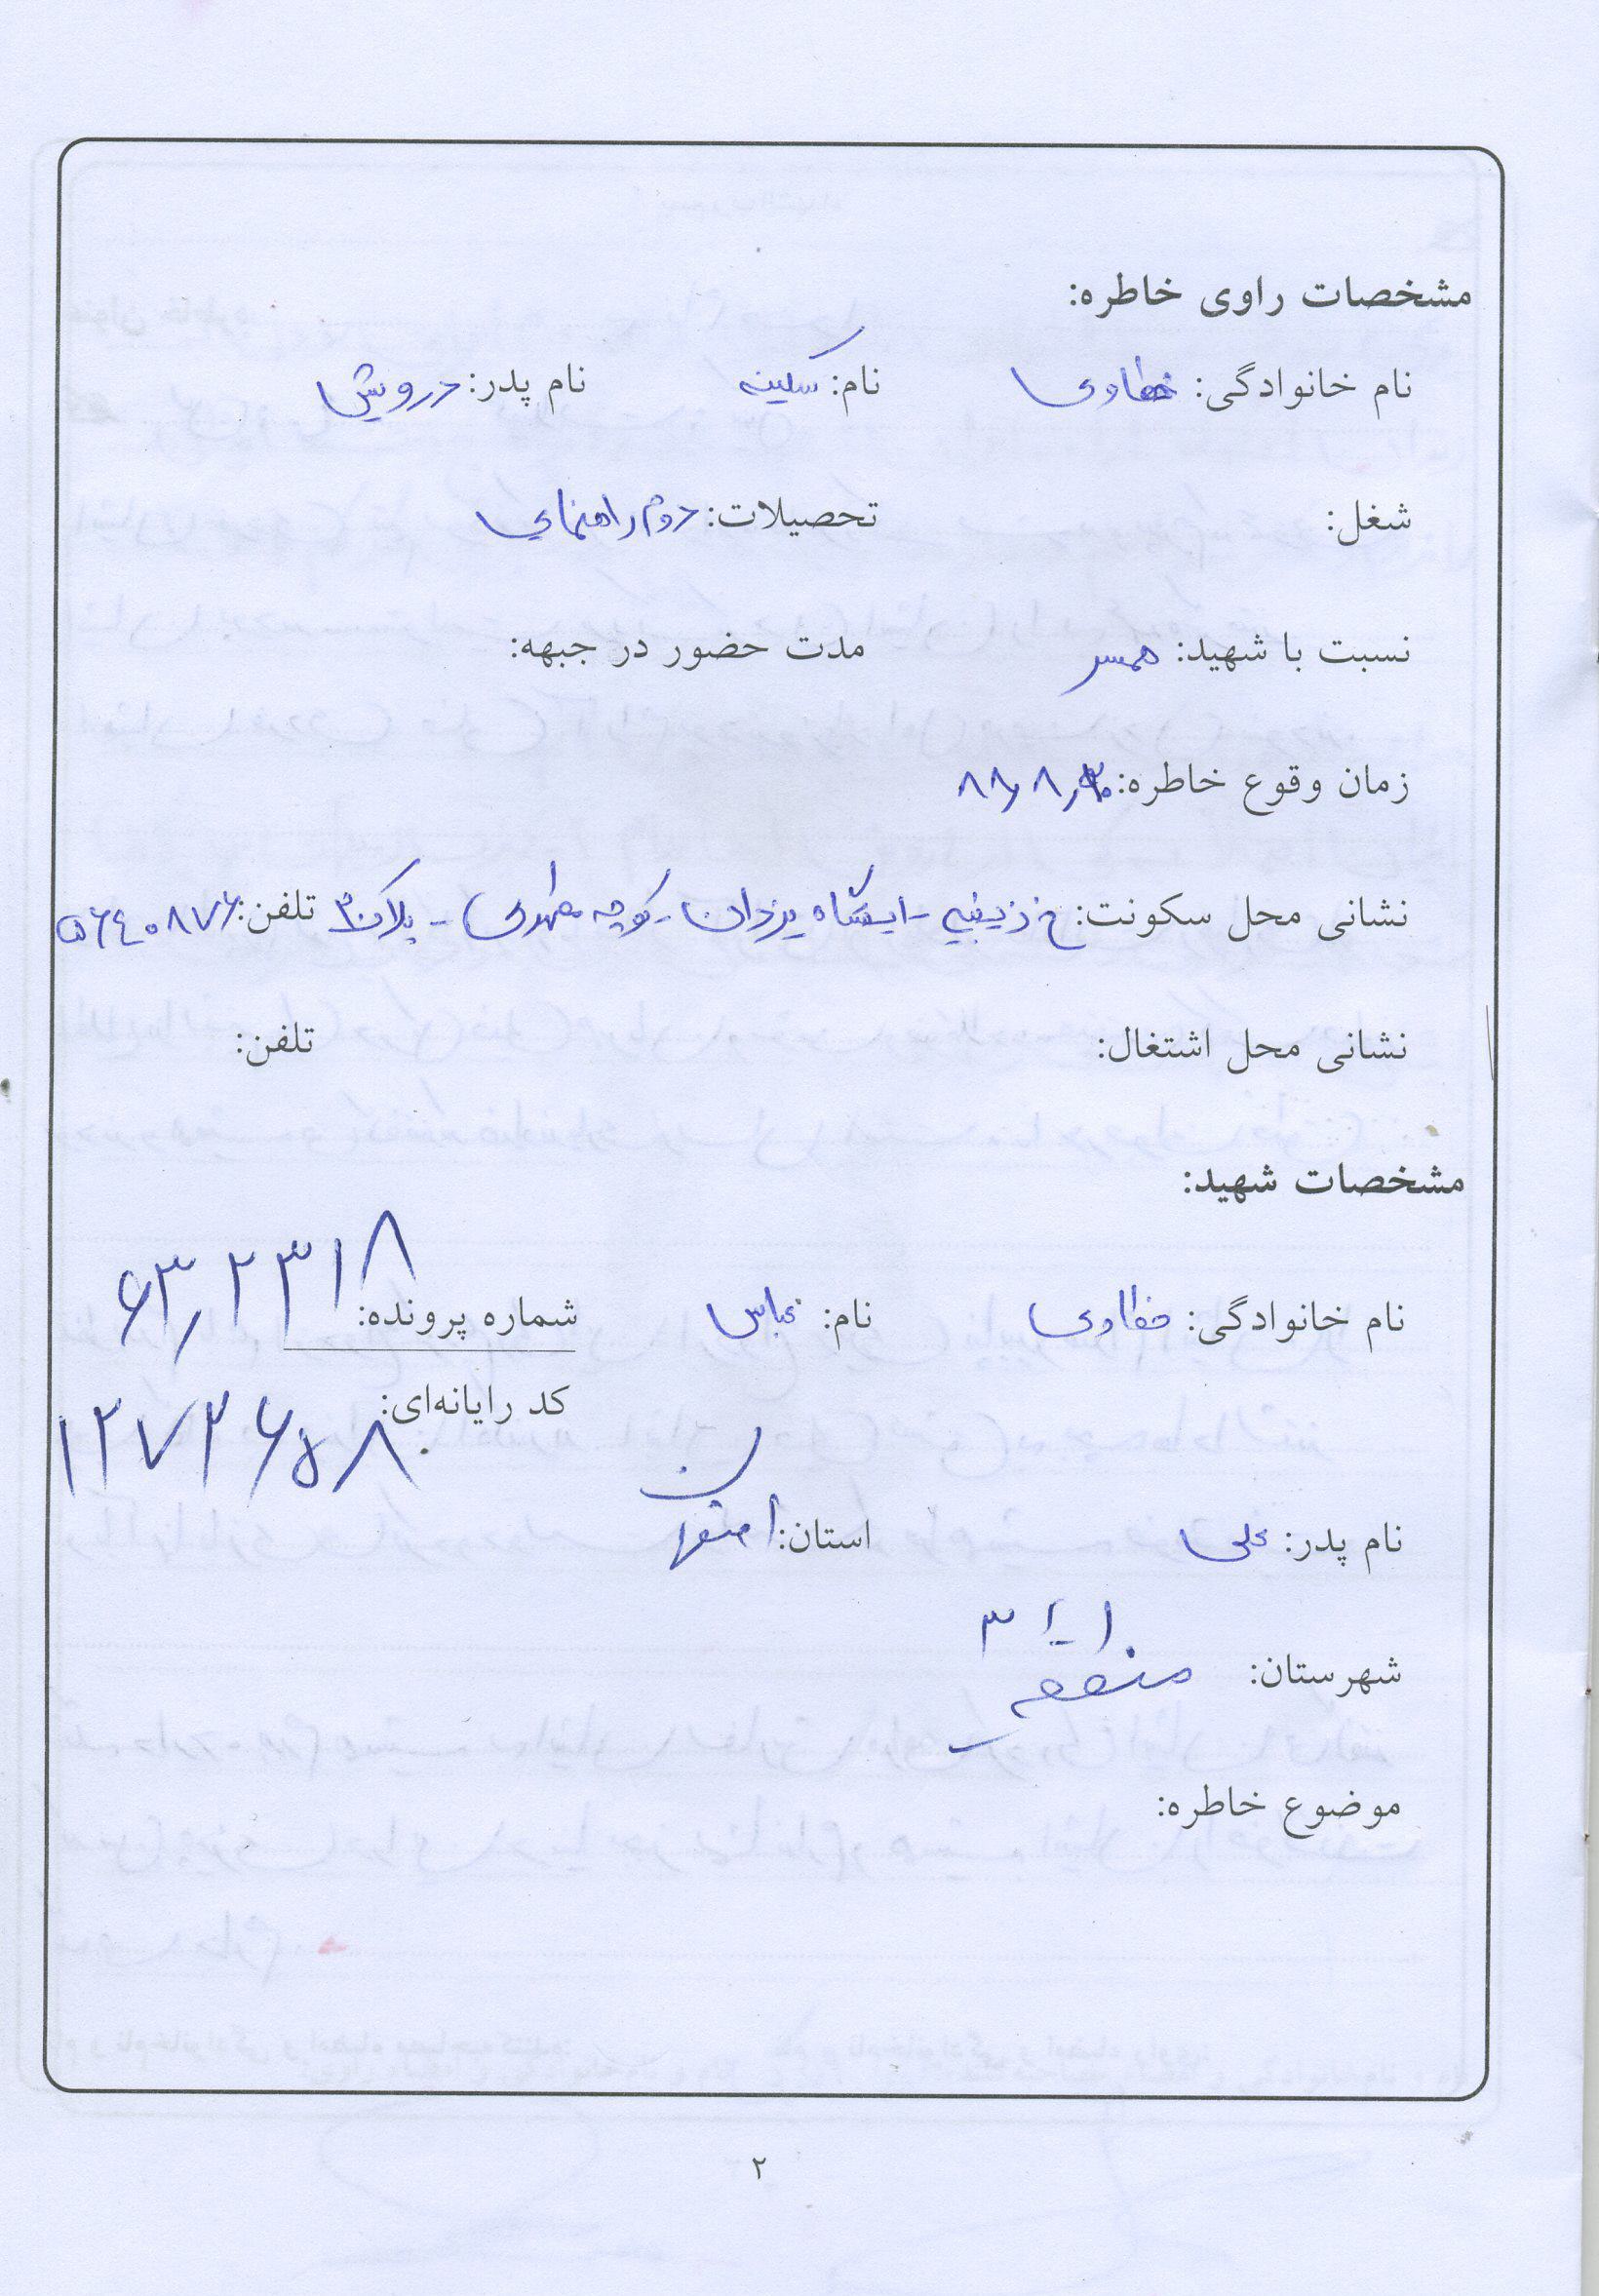 مشخصات راوی خاطره:
نام خانوادگی: خطاوی نام: سکینه نام پدر: درویش
شغل: تحصیلات: دوم راهنمای
نسبت با شهید: همسر مدت حضور در جبهه:
زمان وقوع خاطره: ۸۸٫۸٫
نشانی محل سکونت: خ زینبیه - ایستگاه یزدان - کوچه مطهری - پلاک تلفن: ۵۶۴۰۸۷۶
نشانی محل اشتغال: تلفن:
مشخصات شهید:
نام خانوادگی: خطاوی نام: عباس شماره پرونده: ۶۳٫۲۳۱۸
کد رایانه‌ای: ۱۲۷۲۶۵۸۰
نام پدر: علی استان: اصفهان
شهرستان: منطقه ۳
موضوع خاطره:
۲